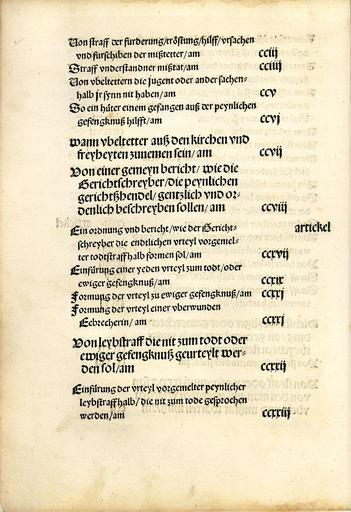 Von straff der furderung/tröstung/hilff/vrsachen
vnd furschiben der mißtetter/am cciij
Straff vnderstandner mißtat/am cciiij
Von vbeltettern die jugent oder ander sachen-
halb jr synn nit haben/am ccv
So ein hüter einem gefangen auß der peynlichen
gefengknuß hilfft/am ccvj
wann vbeltetter auß den kirchen vnd
freyheyten zunemen sein/am ccvij
Von einer gemeyn bericht/wie die
Gerichtschreyber/die peynlichen
gerichtßhendel/gentzlich vnd or-
denlich beschreyben sollen/am ccviij
Ein ordnung vnd bericht/wie der Gericht- artickel
schreyber die endtlichen vrteyl vorgemel-
ter todtstraff halb formen sol/am ccxvij
Einfürung einer yeden vrteyl zum todt/oder
ewiger gefengknuß/am ccxix
Formung der vrteyl zu ewiger gefengknuß/am ccxxj
Formung der vrteyl einer vberwunden
Eebrecherin/am ccxxj
Von leybstraff die nit zum todt oder
ewiger gefengknuß geurteylt wer-
den sol/am ccxxij
Einfürung der vrteyl vorgemelter peynlicher
leybstraff halb/die nit zum tode gesprochen
werden/am ccxxiij